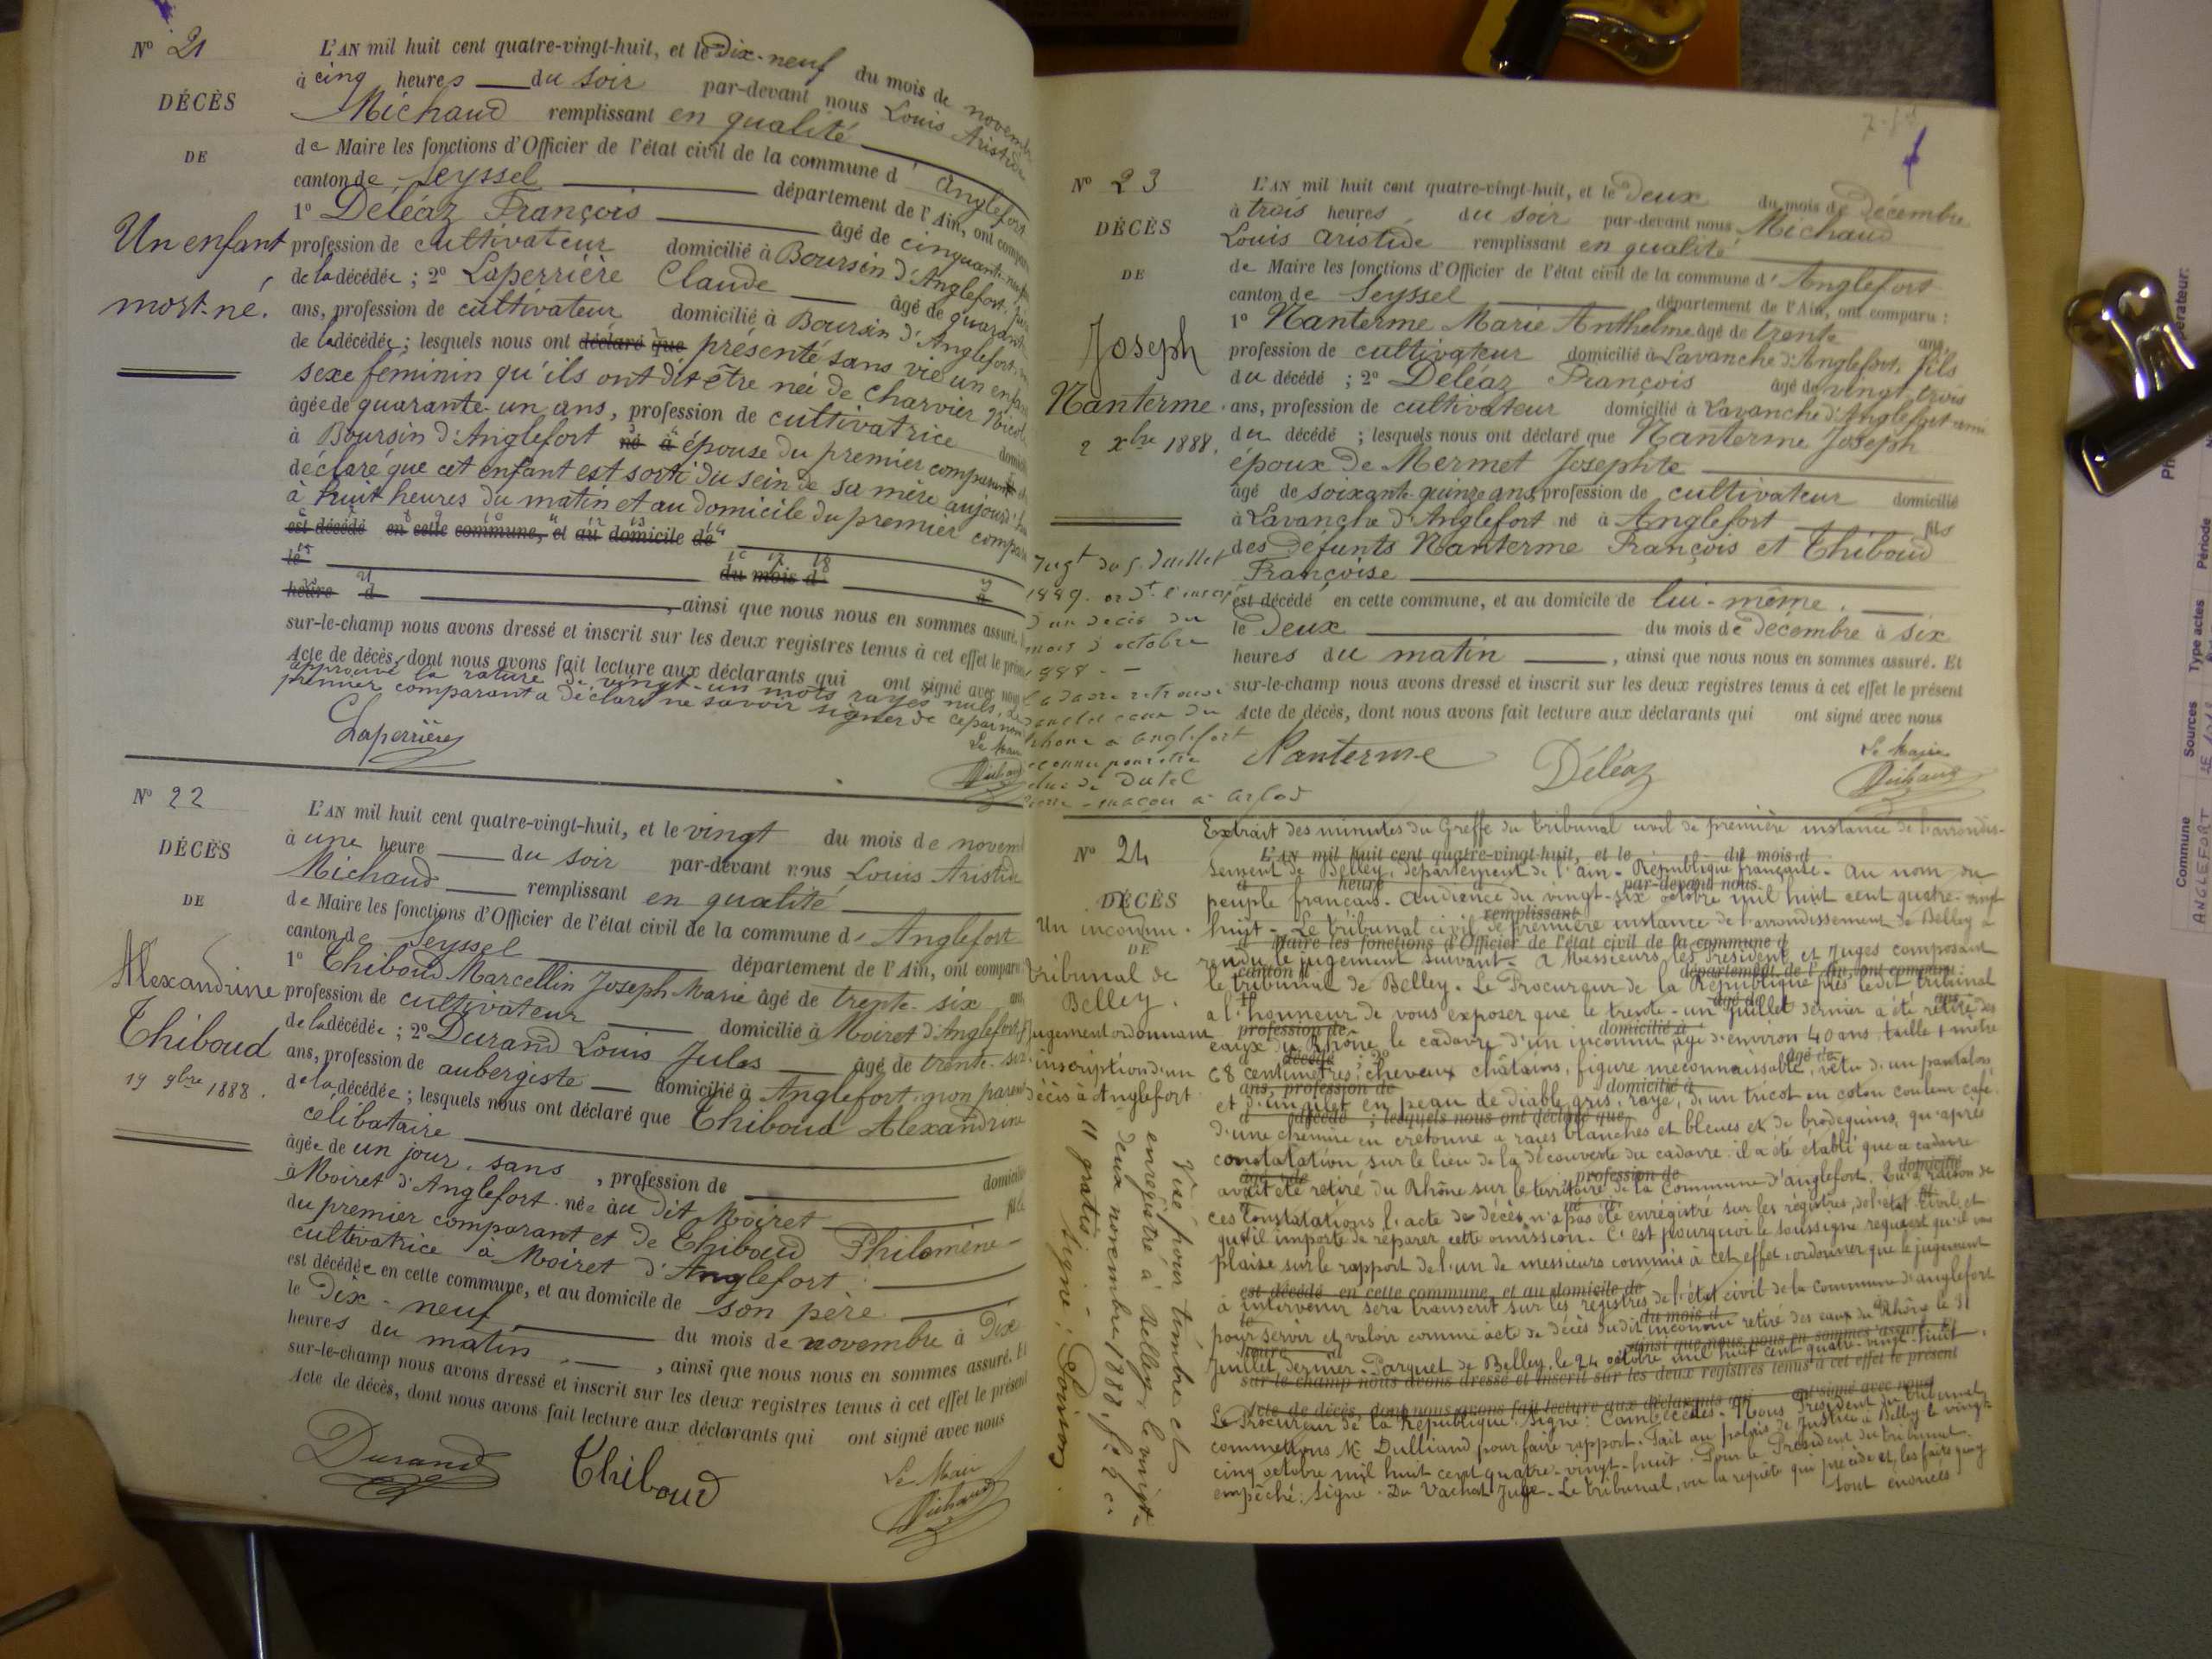 Nº 21
DÉCÈS
DE
Un enfant
mort-né.
L'AN mil huit cent quatre-vingt-huit, et le Dix-neuf du mois de novemb
à cinq heures du soir par-devant nous Louis Aristide
Michaud remplissant en qualité
de Maire les fonctions d'Officier de l'état civil de la commune d' Anglefort
canton de Seyssel département de l'Ain, ont comparu
1º Deléaz François âgé de cinquante
profession de cultivateur domicilié à Boursin d'Anglefort, père
de la décédée ; 2º Laperrière Claude âgé de quarante
ans, profession de cultivateur domicilié à Boursin d'Anglefort
de la décédée ; lesquels nous ont déclaré que présenté sans vie un enfant
sexe féminin qu'ils ont dit être née de Charvier
âgée de quarante-un ans, profession de cultivatrice
à Boursin d'Anglefort né à épouse du premier comparant
déclaré que cet enfant est sorti du sein de sa mère aujourd'hui
à huit heures du matin et au domicile du premier compara
est décédé en cette commune, et au domicile de
le du mois d à
heure d , ainsi que nous nous en sommes assuré.
sur-le-champ nous avons dressé et inscrit sur les deux registres tenus à cet effet le présent
Acte de décès, dont nous avons fait lecture aux déclarants qui ont signé avec nous
approuvé la rature de vingt-un mots rayés nuls, le
premier comparant a déclaré ne savoir signer de ce par nous
Laperrière
Le Maire
Michaud
Nº 22
DÉCÈS
DE
Alexandrine
Thiboud
19 9bre 1888.
L'AN mil huit cent quatre-vingt-huit, et le vingt du mois de novem
à une heure du soir par-devant nous Louis Aristide
Michaud remplissant en qualité
de Maire les fonctions d'Officier de l'état civil de la commune d' Anglefort
canton de Seyssel département de l'Ain, ont comparu
1º Thiboud Marcellin Joseph Marie âgé de trente-six ans
profession de cultivateur domicilié à Moiret d'Anglefort
de la décédée ; 2º Durand Louis Jules âgé de trente-six
ans, profession de aubergiste domicilié à Anglefort, non parent
de la décédée ; lesquels nous ont déclaré que Thiboud Alexandrine
célibataire
âgée de un jour, sans , profession de domicilié
à Moiret d'Anglefort née au dit Moiret fille
du premier comparant et de Thiboud Philomène
cultivatrice à Moiret d'Anglefort
est décédée en cette commune, et au domicile de son père
le Dix-neuf du mois de novembre à Dix
heures du matin , ainsi que nous nous en sommes assuré. Et
sur-le-champ nous avons dressé et inscrit sur les deux registres tenus à cet effet le présent
Acte de décès, dont nous avons fait lecture aux déclarants qui ont signé avec nous
Durand
Thiboud
Le Maire
Michaud
Nº 23
DÉCÈS
DE
Joseph
Nanterme.
2 Xbre 1888.
L'AN mil huit cent quatre-vingt-huit, et le Deux du mois de Décembre
à trois heures du soir par-devant nous Michaud
Louis Aristide remplissant en qualité
de Maire les fonctions d'Officier de l'état civil de la commune d' Anglefort
canton de Seyssel département de l'Ain, ont comparu :
1º Nanterme Marie Anthelme âgé de trente ans,
profession de cultivateur domicilié à Lavanche d'Anglefort, fils
du décédé ; 2º Deléaz François âgé de vingt-trois
ans, profession de cultivateur domicilié à Lavanche d'Anglefort ami
du décédé ; lesquels nous ont déclaré que Nanterme Joseph
époux de Mermet Josephte
âgé de soixante-quinze ans, profession de cultivateur domicilié
à Lavanche d'Anglefort né à Anglefort fils
des défunts Nanterme François et Thiboud
Françoise
est décédé en cette commune, et au domicile de lui-même.
le Deux du mois de Décembre à six
heures du matin , ainsi que nous nous en sommes assuré. Et
sur-le-champ nous avons dressé et inscrit sur les deux registres tenus à cet effet le présent
Acte de décès, dont nous avons fait lecture aux déclarants qui ont signé avec nous
Nanterme
Déléaz
Le Maire
Michaud
Jugt du 5 Juillet
1889.
d'un décès du
mois d'octobre
1888
cadavre retrouvé
dans les eaux du
Rhône à Anglefort
reconnu pour être
celui de Dutel
maçon à Arlod
Nº 24
DÉCÈS
Un inconnu.
DE
tribunal de
Belley.
Jugement ordonnant
inscription d'un
décès à Anglefort
Visé pour timbre et
enregistré à Belley le vingt-
deux novembre 1888, f: 2 c:
11 gratis
Signé:
Extrait des minutes du Greffe du tribunal civil de première instance de l'arrondis-
L'AN mil huit cent quatre-vingt-huit, et le du mois d
sement de Belley, département de l'Ain - République française - Au nom du
à heure par-devant nous
peuple français. Audience du vingt-six octobre mil huit cent quatre-vingt
remplissant
huit - Le tribunal civil de première instance de l'arrondissement de Belley a
d Maire les fonctions d'Officier de l'état civil de la commune d
rendu le jugement suivant - A Messieurs les Président et Juges composant
canton d département de l'Ain, ont comparu
le tribunal de Belley. Le Procureur de la République près le dit tribunal
1º âgé de ans
a l'honneur de vous exposer que le trente-un Juillet dernier a été retiré des
profession de domicilié à
eaux du Rhône le cadavre d'un inconnu, âgé d'environ 40 ans, taille 1 mètre
d décédé ; 2º âgé de
68 centimètres, cheveux châtains, figure méconnaissable, vêtu d'un pantalon
ans, profession de domicilié à
et d'un gilet en peau de diable gris, rayé, d'un tricot en coton couleur café,
d décédé ; lesquels nous ont déclaré que
d'une chemise en cretonne à raies blanches et bleues et de brodequins, qu'après
constatation sur le lieu de la découverte du cadavre, il a été établi que ce cadavre
âgé de profession de domicilié
avait été retiré du Rhône sur le territoire de la Commune d'Anglefort. Qu'à raison de
ces constatations, l'acte de décès n'a pas été enregistré sur les registres de l'état civil et
qu'il importe de réparer cette omission. C'est pourquoi le soussigné requiert qu'il vous
plaise sur le rapport de l'un de messieurs commis à cet effet, ordonner que le jugement
est décédé en cette commune, et au domicile de
à intervenir sera transcrit sur les registres de l'état civil de la commune d'Anglefort
le du mois d
pour servir et valoir comme acte de décès du dit inconnu retiré des eaux du Rhône le 31
heure ainsi que nous nous en sommes assuré. Et
Juillet dernier. Parquet de Belley, le 24 octobre mil huit cent quatre-vingt-huit.
sur-le-champ nous avons dressé et inscrit sur les deux registres tenus à cet effet le présent
Acte de décès, dont nous avons fait lecture aux déclarants qui ont signé avec nous
Le Procureur de la République. Signé: Nous Président du tribunal
commettons Mr Dulliand pour faire rapport. Fait au palais de Justice à Belley le vingt
cinq octobre mil huit cent quatre-vingt-huit. Pour le Président du tribunal
empêché: Signé: Du Vachat Juge. Le tribunal, vu la requête qui précède et les faits qui y
sont énoncés
Commune
Sources
Type actes
Période
ANGLEFORT